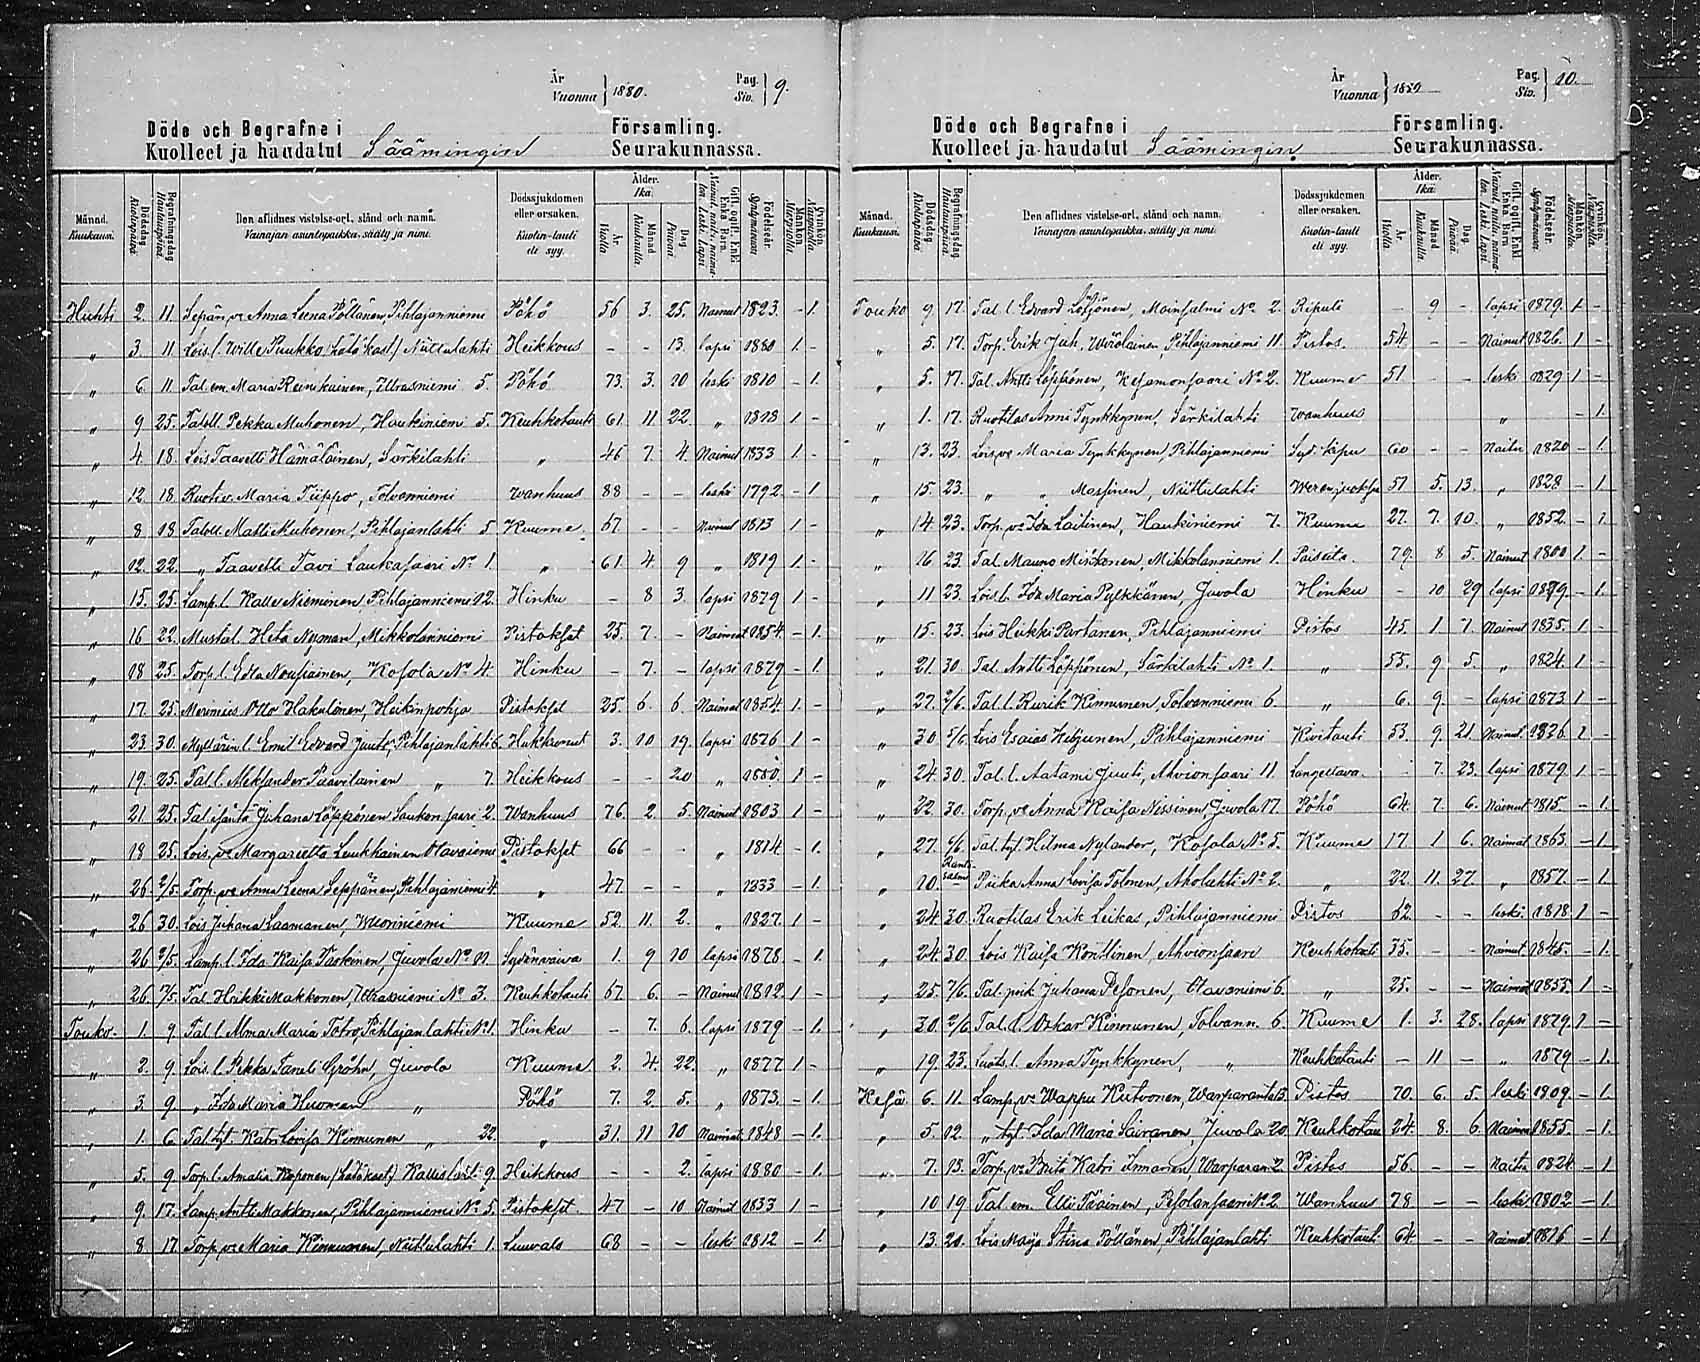 År Vuonna } 1880. Pag. Siv. } 9.
Döde och Begrafne i Församling.
Kuolleet ja haudatut Säämingin Seurakunnassa.
Månad. Kuukausi. Dödsdag. Kuolinpäivä. Begrafningsdag. Hautauspäivä. Den aflidnes vistelse-ort, stånd och namn. Vainajan asuntopaikka, sääty ja nimi. Dödssjukdomen eller orsaken. Kuolin-tauti eli syy. Ålder. Ikä. År. Vuotta. Månad Kuukautta. Dag. Päivää. Gift, ogift, Enkl. Enka Barn. Födelseår. Syntymävuosi. Mankön. Miespuolta. Qvinkön. Naispuolta.
Huhti 2. 11 Sepän v:o Anna Leena Pöllänen, Pihlajanniemi Pöhö 56 3. 25. Naimut 1823. - 1.
„ 3. 11 Lois. l. Wille Puukko (hätä kast.) Niittulahti Heikkous - - 13. lapsi 1880 1. -
„ 6. 11 Tal. em. Maria Reinikainen, Utrasniemi 5. Pöhö 73. 3. 20 leski 1810 - 1.
„ 9 25. Taloll. Pekka Muhonen, Haukiniemi 5. Keuhkotauti 61 11 22. „ 1818 1 -
„ 4. 18. Lois Taavetti Hämäläinen, Särkilahti „ 46 7 4. Naimut 1833 1. -
„ 12. 18. Ruotiv. Maria Tiippo, Tolvanniemi Wanhuus 88 - - leski 1792. - 1
„ 8 18 Taloll. Matti Muhonen, Pihlajanlahti 5 Kuume. 67. - - Naimut 1813 1 -
„ 12. 22. „ Taavetti Tavi Laukasaari No 1. „ 61. 4. 9 „ 1819 1. -
„ 15. 25. Lamp. l. Kalle Nieminen, Pihlajanniemi 12. Hinku - 8 3. lapsi 1879 1 -
„ 16 22. Mustal. Heta Nyman, Mikkolanniemi Pistokset 25. 7. - Naimat 1854. - 1.
„ 18 25. Torp. l. Edla Nousiainen, Kosola No 4. Hinku - 7. - lapsi 1879 - 1.
„ 17. 25. Merimies Otto Hakulonen, Heikinpohja Pistokset 25. 6. 6. Naimat 1854. 1. -
„ 23. 30. Myllärin l. Emil Edvard Juuti, Pihlajanlahti 6. Hukkunut 3. 10 19. lapsi 1876 1 -
„ 19. 25. Tal. l. Aleksander Paavilainen „ 7. Heikkous - - 20 „ 1880. 1 -
„ 21 25. Tal isäntä Juhana Löppönen Laukansaari 2. Wanhuus 76. 2. 5. Naimut 1803 1 -
„ 18 25. Lois. v:o Margareetta Leukkainen Otavaniemi Pistokset 66 - - „ 1814 - 1.
„ 26. 2/5. Torp. v:o Anna Leena Seppänen, Pihlajaniemi 4. „ 47. - - „ 1833 - 1.
„ 26 30. Lois Juhana Laamanen, Wuoriniemi Kuume 52. 11. 2. „ 1827. 1 -
„ 26 2/5. Lamp. l. Ida Kaisa Taskinen, Juvola No 11. Sydänvaiva 1. 9 10 lapsi 1878 - 1.
„ 26. 7/5. Tal. Heikki Makkonen, Utrasniemi No 3. Keuhkotauti 67. 6. - Naimut 1812 1 -
Touko. 1. 9 Tal. l. Alma Maria Totro, Pihlajanlahti No 1. Hinku - 7. 6. lapsi 1879 - 1.
„ 2. 9. Lois. l. Pekka Taneli Gröhn, Juvola Kuume. 2. 4. 22. „ 1877 1 -
„ 3. 9. „ Ida Maria Huoman „ Pöhö 7. 2. 5. „ 1873. - 1.
„ 1. 6 Tal. tyt. Katri Lovisa Kinnunen „ 22. „ 31. 11 10 Naimat. 1848 - 1.
„ 5. 9 Torp. l. Amalia Koponen (hätä kast.) Kallislahti 9 Heikkous - - 2. lapsi 1880 - 1.
„ 9. 17. Lamp. Antti Makkonen, Pihlajanniemi No 5. Pistokset. 47 - 10 Naimut 1833 1 -
„ 8 17 Torp. v:o Maria Kinnunen, Niittulahti 1. Luuvalo 68 - - leski 1812 - 1.
År Vuonna } 1880 Pag. Siv. } 10.
Döde och Begrafne i Församling.
Kuolleet ja haudatut Säämingin. Seurakunnassa.
Månad. Kuukausi. Dödsdag. Kuolinpäivä. Begrafningsdag. Hautauspäivä. Den aflidnes vistelse-ort, stånd och namn. Vainajan asuntopaikka, sääty ja nimi. Dödssjukdomen eller orsaken. Kuolin-tauti eli syy. Ålder. Ikä. År. Vuotta. Månad Kuukautta. Dag. Päivää. Gift, ogift, Enkl. Enka Barn. Födelseår. Syntymävuosi. Mankön. Miespuolta. Qvinkön. Naispuolta.
Touko 9 17. Tal. l. Edvard Löfjönen, Moinsalmi No 2. Ripuli - 9 - lapsi 1879. 1 -
„ 5. 17. Torp. Erik Juh. Wirolainen, Pihlajanniemi 11 Pistos. 54. - - Naimut 1826. 1 -
„ 5. 17. Tal. Antti Löppönen, Kesamonsaari No 2. Kuume 51 - - leski 1829 1 -
„ 1. 17. Ruotilas Anni Tynkkynen, Särkilahti Wanhuus „ - 1.
„ 13. 23. Lois. v:o Maria Tynkkynen, Pihlajanniemi Syd. kipu 60 - - Naitu 1820 - 1.
„ 15. 23. „ „ Massinen, Niittulahti Werenjuoksu 51 5. 13. „ 1828 - 1
„ 14. 23. Torp. v:o Ida Laitinen, Haukiniemi 7. Kuume 27. 7. 10. „ 1852. - 1
„ 16 23. Tal. Mauno Miskonen, Mikkolanniemi 1. Paiseita. 79. 8 5. Naimut 1800 1. -
„ 11 23. Lois. l. Ida Maria Pylkkänen, Juvola Hinku - 10 29 lapsi 1879 - 1.
„ 15. 23. Lois Heikki Partanen, Pihlajanniemi Pistos 45. 1 7. Naimut 1835. 1. -
„ 21. 30. Tal. Antti Löppönen, Särkilahti No 1. „ 55. 9 5. „ 1824. 1 -
„ 27. 2/6. Tal. l. Rurik Kinnunen, Tolvanniemi 6. „ 6. 9. - lapsi 1873 1 -
„ 30 5/6. Lois Esaias Heljunen, Pihlajanniemi Kivitauti 53. 9 21 Naimut 1826. 1 -
„ 24. 30. Tal. l. Aatami Juuti, Ahvionsaari 11. Langettava. - 7. 23. lapsi 1879. 1 -
„ 22. 30. Torp. v:o Anna Kaisa Nissinen, Juvola 17. Pöhö 64. 7. 6. Naimut 1815 - 1.
„ 27. 6/6. Tal. tyt. Hilma Nylander, Kosola No 5. Kuume 17 1 6. Naimat 1863. - 1.
„ 10. Rantasalmi Piika Anna Lovisa Tolonen, Aholahti No 2. „ 22. 11. 27. „ 1857. - 1.
„ 24. 30. Ruotilas Erik Leikas, Pihlajanniemi Pistos 62. - - leski. 1818. 1 -
„ 24. 30. Lois Kaisa Konttinen, Ahvionsaari Keuhkotauti 35. - - Naimut 1845. - 1.
„ 25. 7/6. Tal. poik Juhana Pesonen, Otavaniemi 6. „ 25. - - Naimat 1855. 1 -
„ 30. 2/6. Tal. l. Oskar Kinnunen, Tolvann. 6. Kuume 1. 3. 28. lapsi 1879. 1 -
„ 19. 23. Luots. l. Anna Tynkkynen, „ Keuhkotauti - 11 - „ 1879 - 1.
Kesä. 6. 11. Lamp. v:o Wappu Kietvonen, Warparanta 15. Pistos 70. 6. 5. leski 1809. - 1.
„ 5. 12. „ tyt. Ida Maria Sairanen, Juvola 20. Keuhkotau 24. 8. 6. Naimat 1855. - 1.
„ 7. 13. Torp. v:o Brita Katri Immonen, Warparan. 2. Pistos 56. - - Naitu 1824. - 1
„ 10 19 Tal. em. Elli Toivinen, Pesolansaari No 2. Wanhuus 78 - - leski 1802 - 1.
„ 13. 20. Lois Maija Stiina Pöllänen, Pihlajanlahti Keuhkotauti. 64. - - Naimat 1816 - 1.